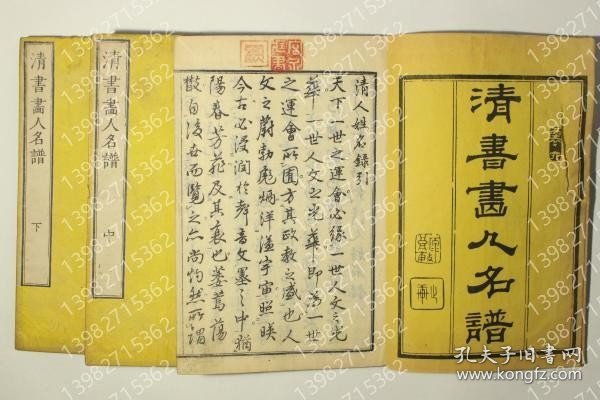 清書畫人名譜
清人姓名錄引
天下一世之運會必緣一世人文之光
華一世人文之光華即為一世
之運會所囿方其政教之盛也人
文之蔚勃彪炳洋溢宇宙照暎
今古必浸潤於聲音文墨之中猶
陽春芳菲及其衰也萎蔫蕩
散自後世而覽之亦尚灼然所謂
清書畫人名譜
中
清書畫人名譜
下
13982715362
孔夫子旧书网
www.kongfz.com